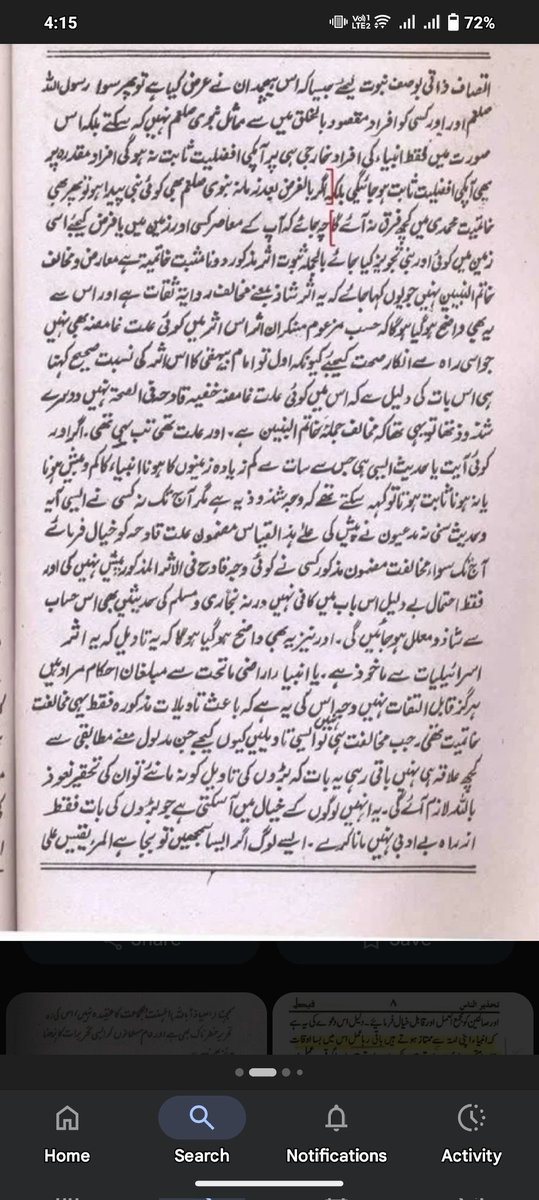 4:15
Vol) 1
LTE2
72%
اتصاف ذاتی بوصف نبوت لیجئے جیسا کہ اس ہیچمدان نے عرض کیا ہے تو پھر سوا رسول اللہ
صلعم اور اور کسی کو افراد مقصود بالخلق میں سے مماثل نبوی صلعم نہیں کہہ سکتے بلکہ اس
صورت میں فقط انبیاء کی افراد خارجی ہی پر آپکی افضلیت ثابت نہ ہوگی افراد مقدرہ پر
بھی آپکی افضلیت ثابت ہو جائیگی بلکہ اگر بالفرض بعد زمانہ نبوی صلعم بھی کوئی نبی پیدا ہو تو پھر بھی
خاتمیت محمدی میں کچھ فرق نہ آئے گا چہ جائے کہ آپ کے معاصر کسی اور زمین میں یا فرض کیجئے اسی
زمین میں کوئی اور نبی تجویز کیا جائے بالجملہ ثبوت اثر مذکور دونا مثبت خاتمیت ہے معارض و مخالف
خاتم النبیین نہیں جو یوں کہا جائے کہ یہ اثر شاذ بمعنے مخالف روایۃ ثقات ہے اور اس سے
یہ بھی واضح ہو گیا ہوگا کہ حسب مزعوم منکران اثر اس اثر میں کوئی علت غامضہ بھی نہیں
جو اسی راہ سے انکار صحت کیجئے کیونکہ اول تو امام بیہقی کا اس اثر کی نسبت صحیح کہنا
ہی اس بات کی دلیل ہے کہ اس میں کوئی علت غامضہ خفیہ قادحہ فی الصحۃ نہیں دوسرے
شذوذ تھا تو یہی تھا کہ مخالف جملہ خاتم النبیین ہے۔ اور علت تھی تب یہی تھی۔ اگر اور
کوئی آیت یا حدیث ایسی ہی جس سے سات سے کم زیادہ زمینوں کا ہونا انبیاء کا کم و بیش ہونا
یا نہ ہونا ثابت ہوتا تو کہہ سکتے تھے کہ وجہ شذوذ یہ ہے مگر آج تک نہ کسی نے ایسی آیہ
و حدیث سنی نہ مدعیون نے پیش کی علے ہذا القیاس مضمون علت قادحہ کو خیال فرمائے
آج تک سوا مخالفت مضمون مذکور کسی نے کوئی وجہ قادح فی الاثر المذکور پیش نہیں کی اور
فقط احتمال بے دلیل اس باب میں کافی نہیں ورنہ بخاری و مسلم کی حدیثیں بھی اس حساب
سے شاذ و معلل ہو جائیں گی۔ اور نیز یہ بھی واضح ہو گیا ہوگا کہ یہ تاویل کہ یہ اثر
اسرائیلیات سے ماخوذ ہے۔ یا انبیاء اراضی ماتحت سے مبلغان احکام مراد ہیں
ہرگز قابل التفات نہیں وجہ اس کی یہ ہے کہ باعث تاویلات مذکورہ فقط یہی مخالفت
خاتمیت تھی۔ جب مخالفت ہی نہیں تو ایسی تاویلیں کیوں کیجئے جن مدلول معنے مطابقی سے
کچھ علاقہ ہی نہیں باقی رہی یہ بات کہ بڑوں کی تاویل کو نہ مانئے تو ان کی تحقیر نعوذ
باللہ لازم آئے گی۔ یہ انہیں لوگوں کے خیال میں آ سکتی ہے جو بڑوں کی بات فقط
ازراہ بے ادبی نہیں مانا کرتے۔ ایسے لوگ اگر ایسا سمجھیں تو بجا ہے المرء یقیس علی
Share
Save
تحذیر الناس
۸
Home
Search
Notifications
Activity